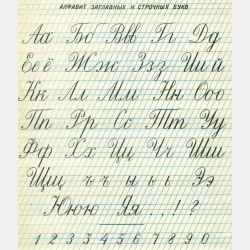 АЛФАВИТ ЗАГЛАВНЫХ И СТРОЧНЫХ БУКВ
Аа Бб Ввв Гг Дд
Ее ё Жж Ззз Ии й
Кк Лл Мм Нн Ооо
Пп Рр Сс Тт Уу
Фф Хх Цц Чч Шш
Щщ ъ ъ ы ь ь Ээ
Ююю Яя . , ! ?
1 2 3 4 5 6 7 8 9 0